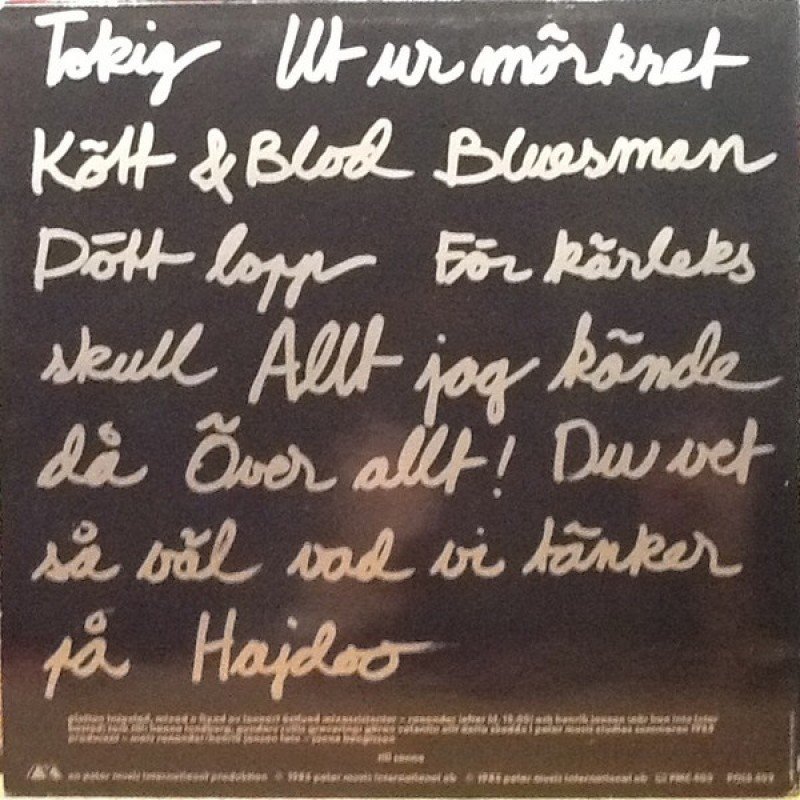 Tokig Ut ur mörkret
Kött & Blod Bluesman
Dött lopp För kärleks
skull Allt jag kände
då Över allt! Du vet
så väl vad vi tänker
på Hajdoo
till sanna
en peter music international produktion 1984 peter music international ab 1984 peter music international ab